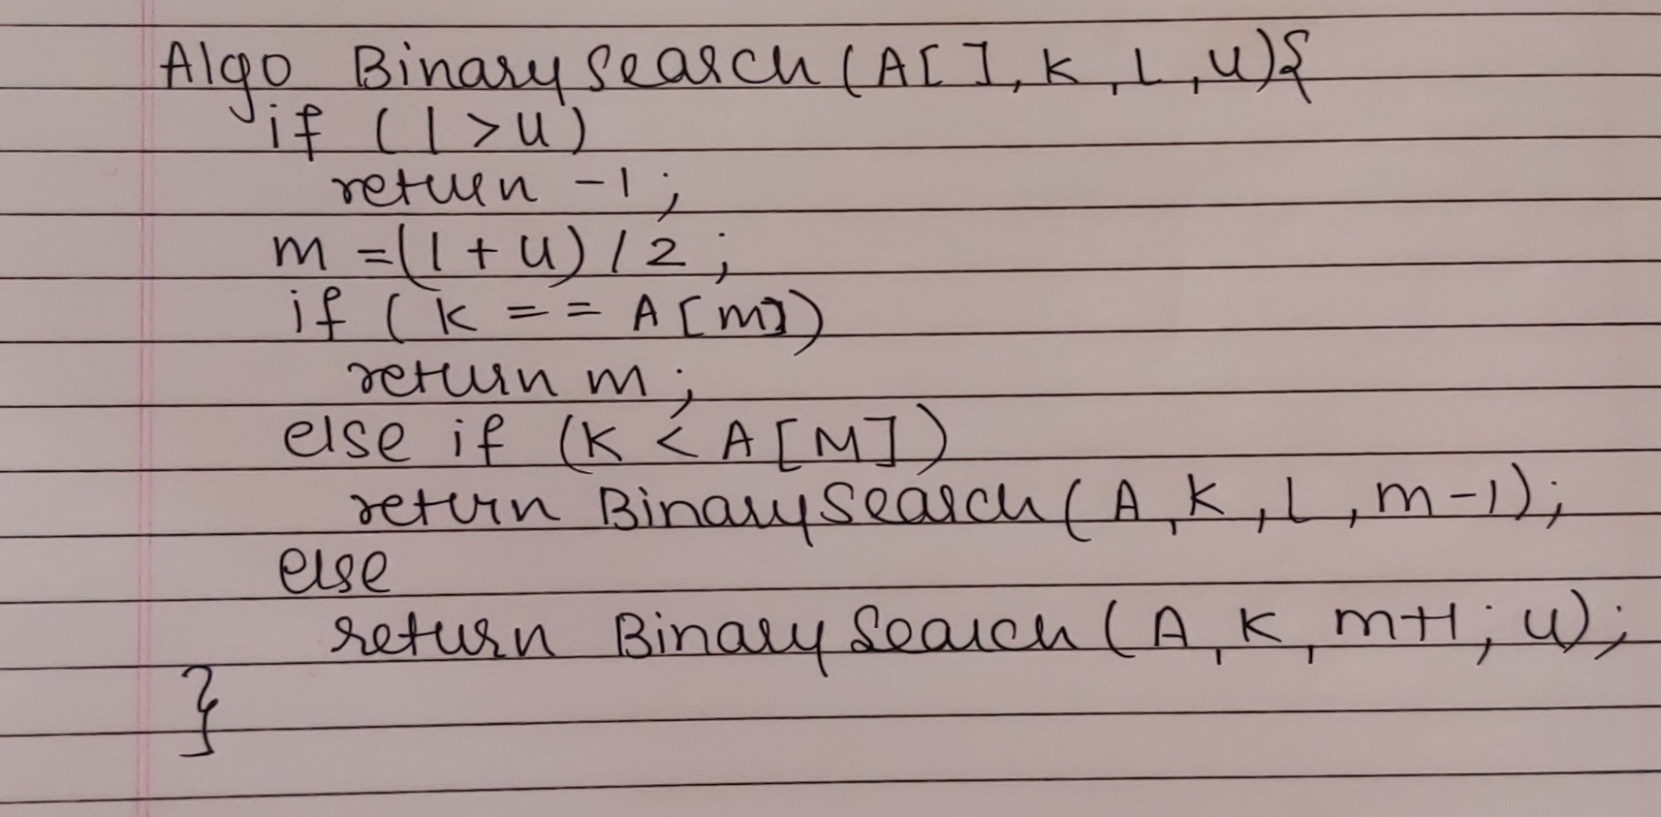 Algo Binary Search (A[ ], K, L, U){
if (l > u)
return -1;
m = (l + u) / 2;
if ( k == A[m])
return m;
else if (K < A[M])
return Binary Search (A, K, L, m-1);
else
return Binary Search (A, K, m+1; u);
}